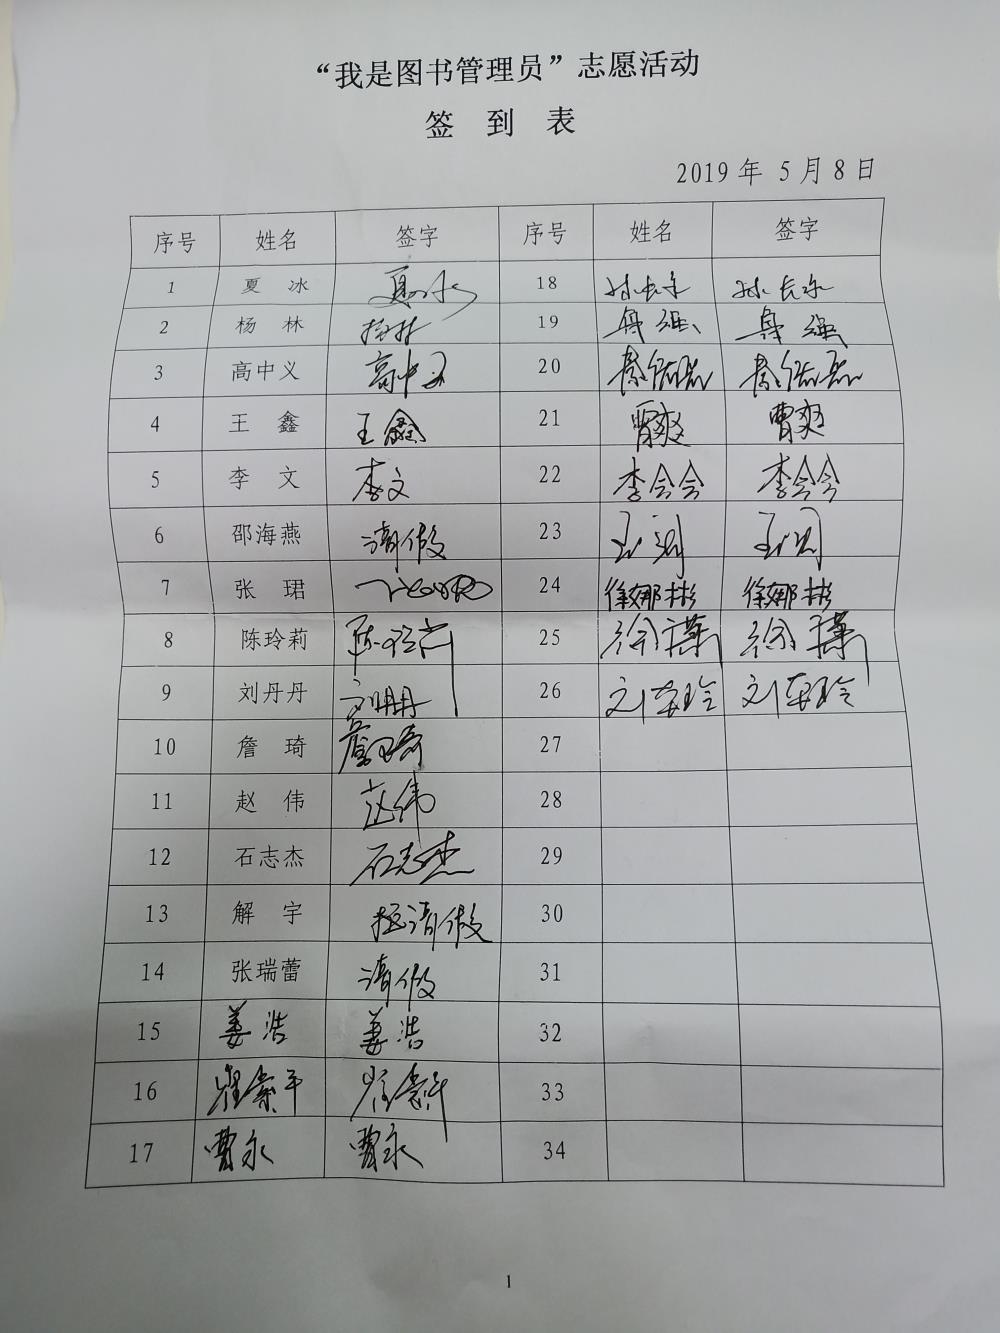 “我是图书管理员”志愿活动
签 到 表
2019 年 5 月 8 日
序号 姓名 签字 序号 姓名 签字
1 夏 冰 夏冰 18
2 杨 林 杨林 19
3 高中义 高中义 20
4 王 鑫 王鑫 21 曹爽 曹爽
5 李 文 李文 22 李会会 李会会
6 邵海燕 请假 23
7 张 珺 24 徐娜彬 徐娜彬
8 陈玲莉 陈玲莉 25 徐潇 徐潇
9 刘丹丹 刘丹丹 26 刘亚玲 刘亚玲
10 詹 琦 詹琦 27
11 赵 伟 赵伟 28
12 石志杰 石志杰 29
13 解 宇 请假 30
14 张瑞蕾 请假 31
15 姜浩 姜浩 32
16 33
17 曹永 曹永 34
1